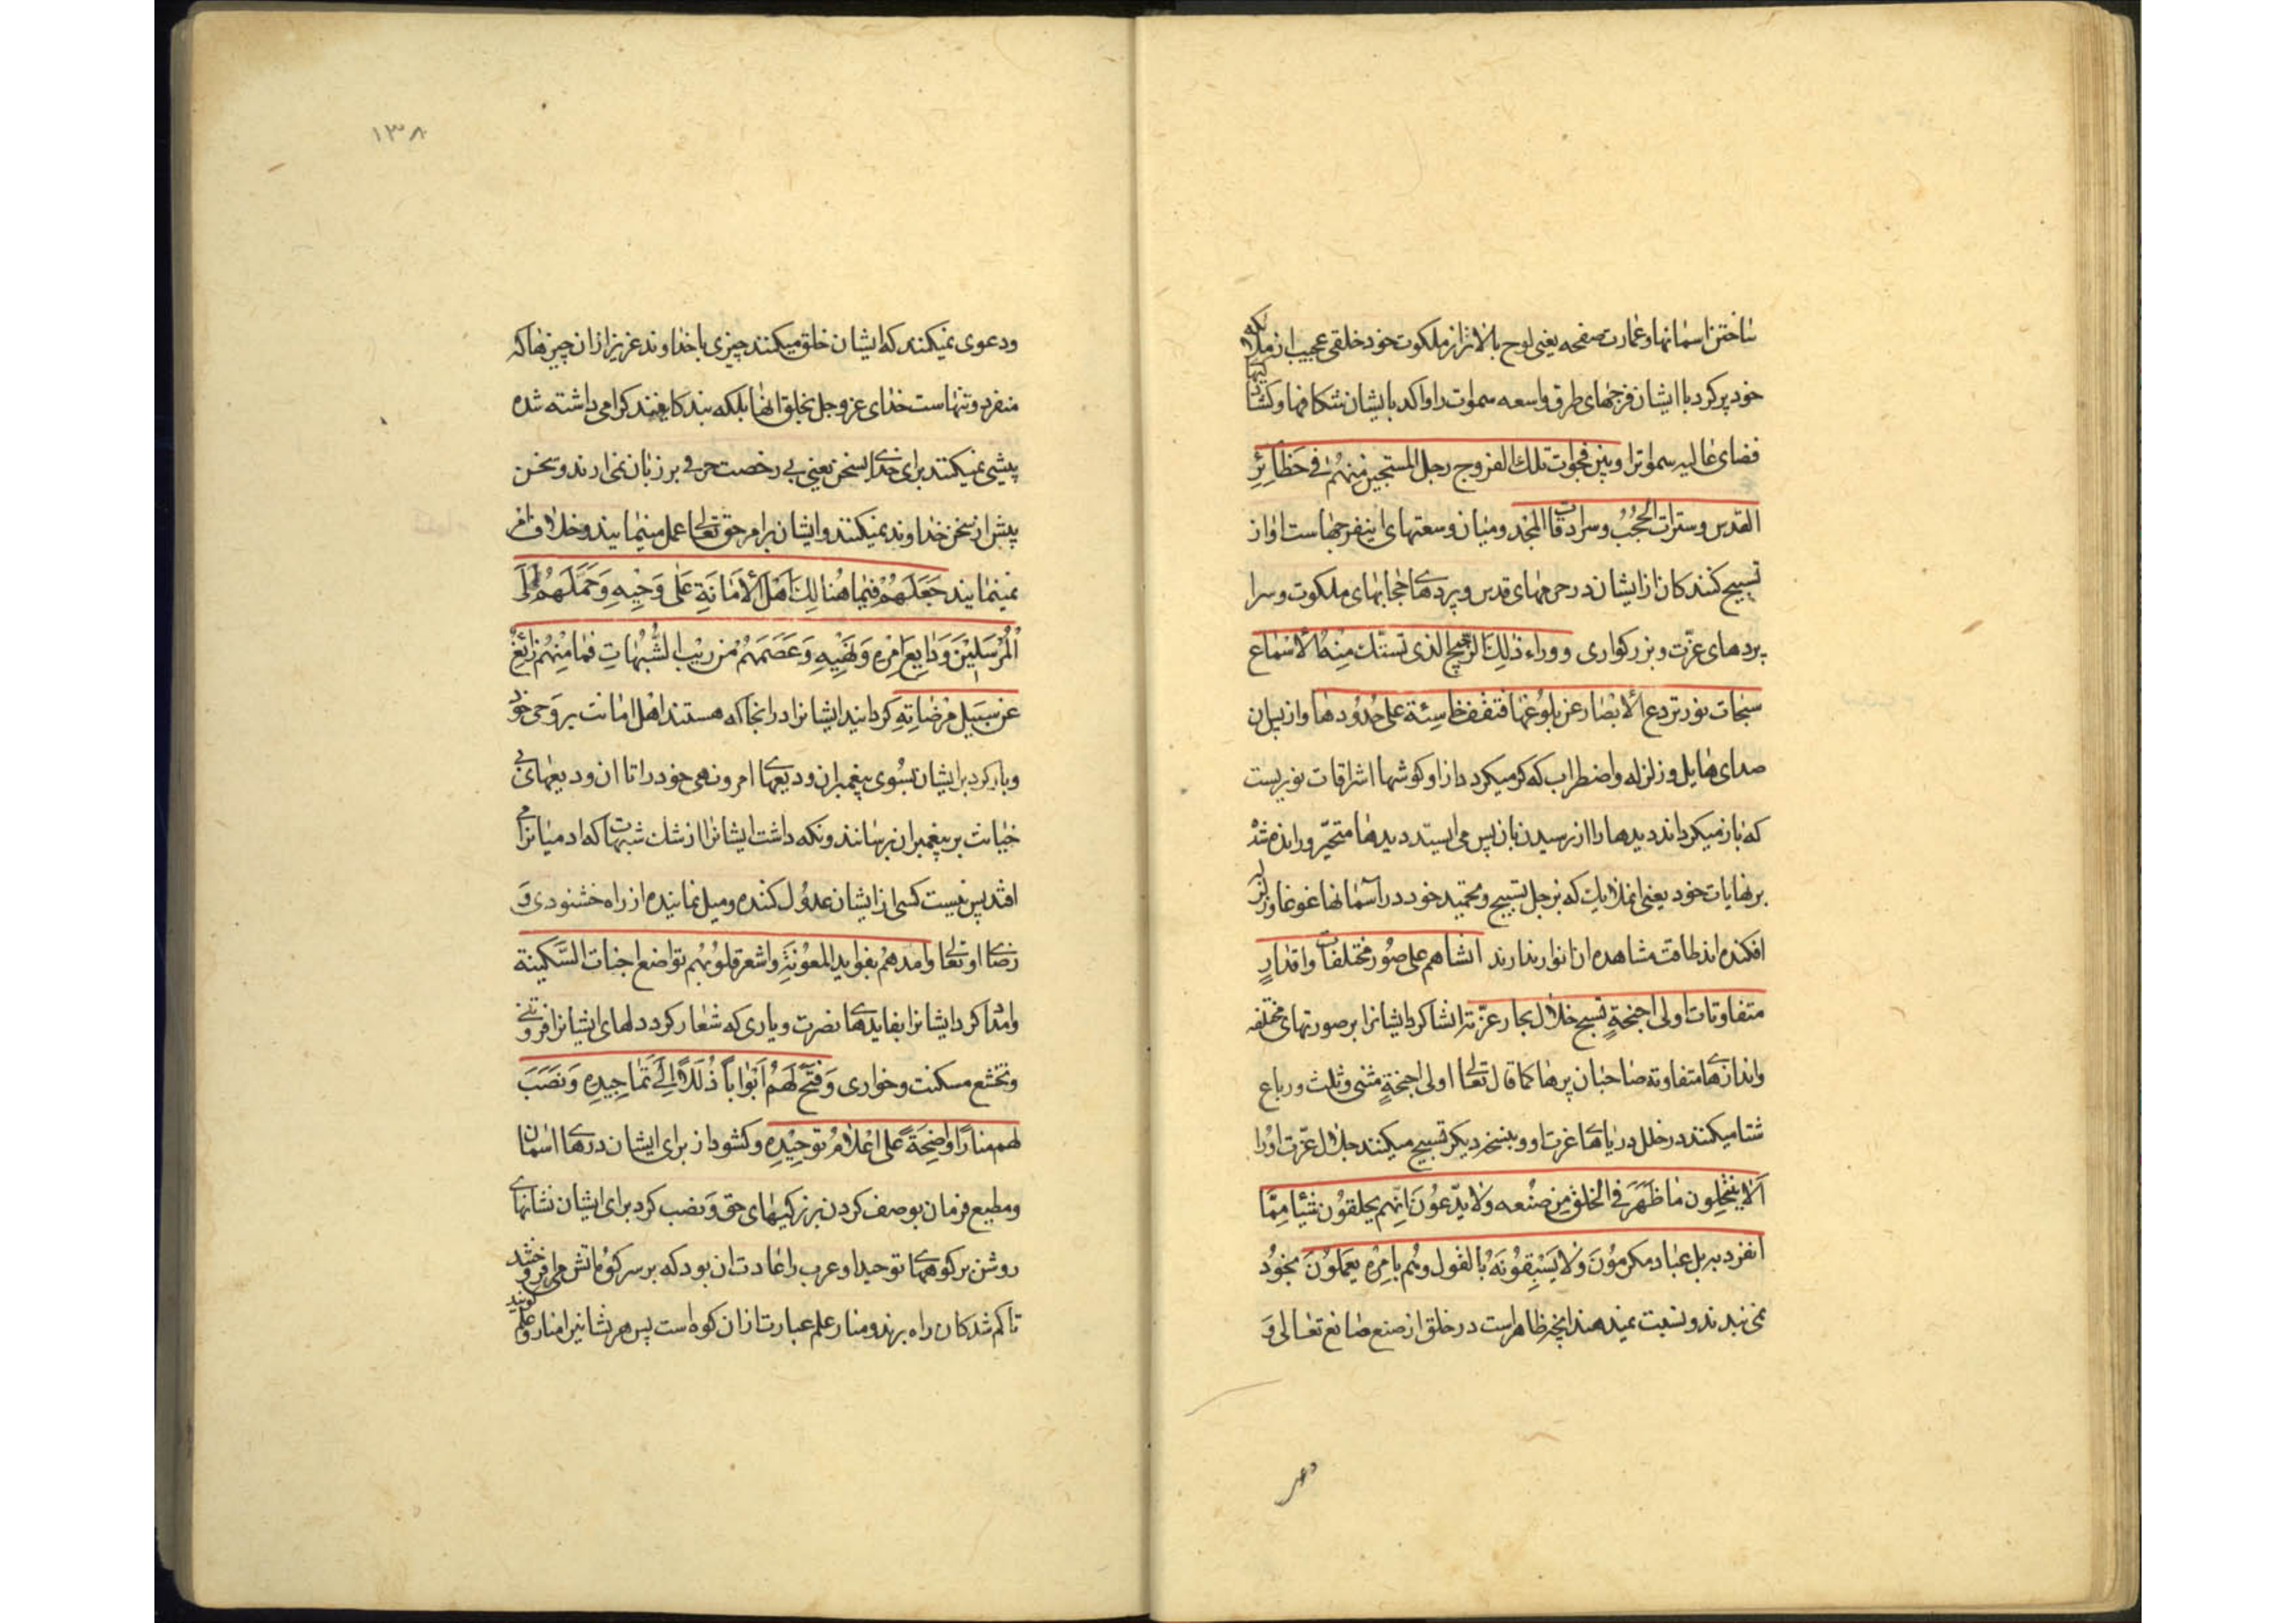 ساختن اسمانها و عمارت صفحه یعنی لوح بالاتر از ملکوت خود خلقی عجیب از ملائکه
خود پر کرد با ایشان فرجهای طرق واسعه سموات را واکند بایشان شکافها و کشادکیها
فضای عالیه سمواترا وبین فجوات تلك الفروج زجل المسبحین منهم فی حظائر
القدس وسترات الحجب وسرادقات المجد ومیان وسعتهای این فرجهاست اواز
تسبیح کنندکان از ایشان در حرمهای قدس و پردهای حجابهای ملکوت و سرا
پردهای عزّت و بزرکواری ووراء ذلك الرجیج الذی تستك منه الاسماع
سبحات نور تردع الابصار عن بلوغها فتقف خاسئة علی حدودها واز پس ان
صدای هایل و زلزله و اضطراب که کر میکردد از او کوشها اشراقات نوریست
که باز میکرداند دیدها را از رسیدن بان پس می ایستد دیدها متحیّر و رانده شده
بر نهایات خود یعنی ان ملایك که زجل تسبیح و تحمید خود در آسمانها غوغا و لرز
افکنده اند طاقت مشاهده ان انوار ندارند انشاهم علی صور مختلفات واقدار
متفاوتات اولی اجنحة تسبح خلال بحار عزّته انشا کرد ایشانرا بر صورتهای مختلفه
واندازهای متفاوته صاحبان پرها کما قال تعالی اولی اجنحة مثنی وثلث ورباع
شنا میکنند در خلل دریاهای عزت او وبنسخه دیکر تسبیح میکنند جلال عزّت او را
الا ینتحلون ما ظهر فی الخلق من صنعه ولا یدّعون انّهم یخلقون شیئا ممّا
انفرد به بل عباد مکرمون ولا یسبقونه بالقول وهم بامره یعملون بخود
نمی بندند و نسبت نمیدهند انچه ظاهر است در خلق از صنع صانع تعالی و
۱۳۸
ودعوی نمیکنند که ایشان خلق میکنند چیزی با خداوند عزیز از ان چیزها که
منفرد و تنهاست خدای عزوجل بخلق انها بلکه بندکانیند کرامی داشته شده
پیشی نمیکنند برای خدای بسخن یعنی بی رخصت حرفی بر زبان نمی ارند و سخن
پیش از سخن خداوند نمیکنند و ایشان بر امر حق تعالی عمل مینمایند و خلاف امر
نمینمایند جعلهم فیما هنالك اهل الامانة علی وحیه وحمّلهم الی
المرسلین ودایع امره ونهیه وعصمهم من ریب الشّبهات فما منهم زائغ
عن سبیل مرضاته کردانید ایشانرا در انجا که هستند اهل امانت بر وحی خود
و بار کرد بر ایشان بسوی پیغمبران ودیعهای امر و نهی خود را تا ان ودیعهای بی
خیانت بر پیغمبران برسانند ونکه داشت ایشانرا از شك شبهات که ادمیانرا می
افتد پس نیست کسی از ایشان عدول کننده و میل نماینده از راه خشنودی و
رضای او تعالی وامدهم بفواید المعونة واشعر قلوبهم تواضع اخبات السّکینة
وامداد کرد ایشانرا بفایدهای نصرت و یاری که شعار کرد دلهای ایشانرا فروتنی
وتخشع مسکنت و خواری وفتح لهم ابوابا ذللا الی تماجیده ونصب
لهم منارا واضحة علی اعلام توحیده وکشود از برای ایشان درهای اسان
ومطیع فرمان بوصف کردن بزرکیهای حق ونصب کرد برای ایشان نشانهای
روشن بر کوههای توحید او عرب را عادت ان بود که بر سر کوه اتش می افروختند
تا کم شدکان راه برند ومنار علم عبارت از ان کوه است پس هر نشانیرا منار و علم کویند